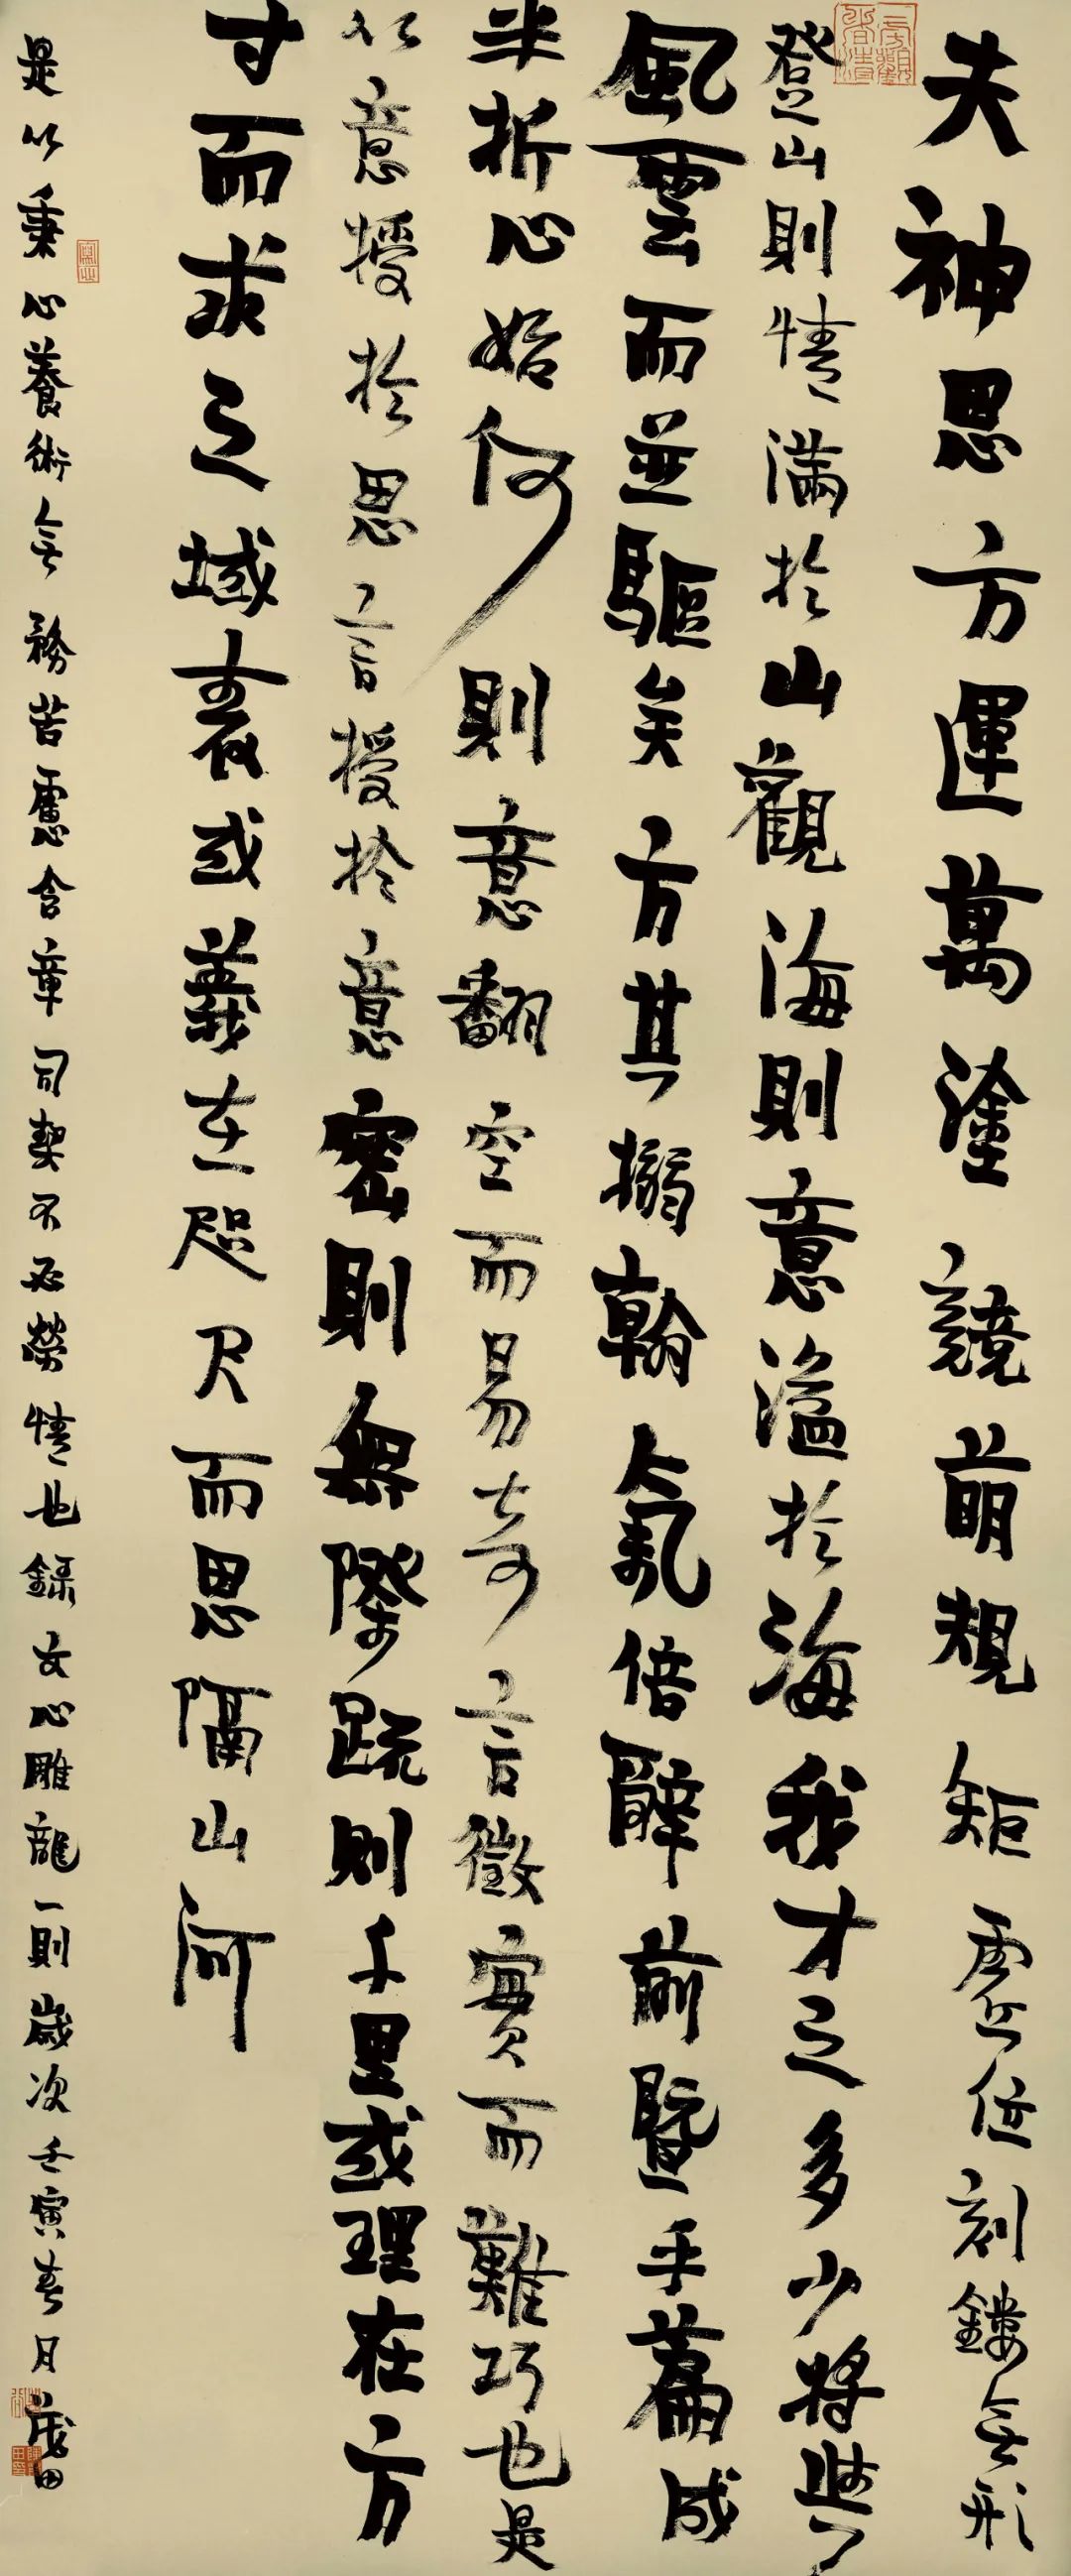 夫神思方運萬塗競萌規矩虛位刻鏤無形
登山則情滿於山觀海則意溢於海我才之多少將與
風雲而並驅矣方其搦翰氣倍辭前暨乎篇成
半折心始何則意翻空而易奇言徵實而難巧也是
以意授於思言授於意密則無際疏則千里或理在方
寸而求之域表或義在咫尺而思隔山河
是以秉心養術無務苦慮含章司契不必勞情也錄文心雕龍一則歲次壬寅春月茂田